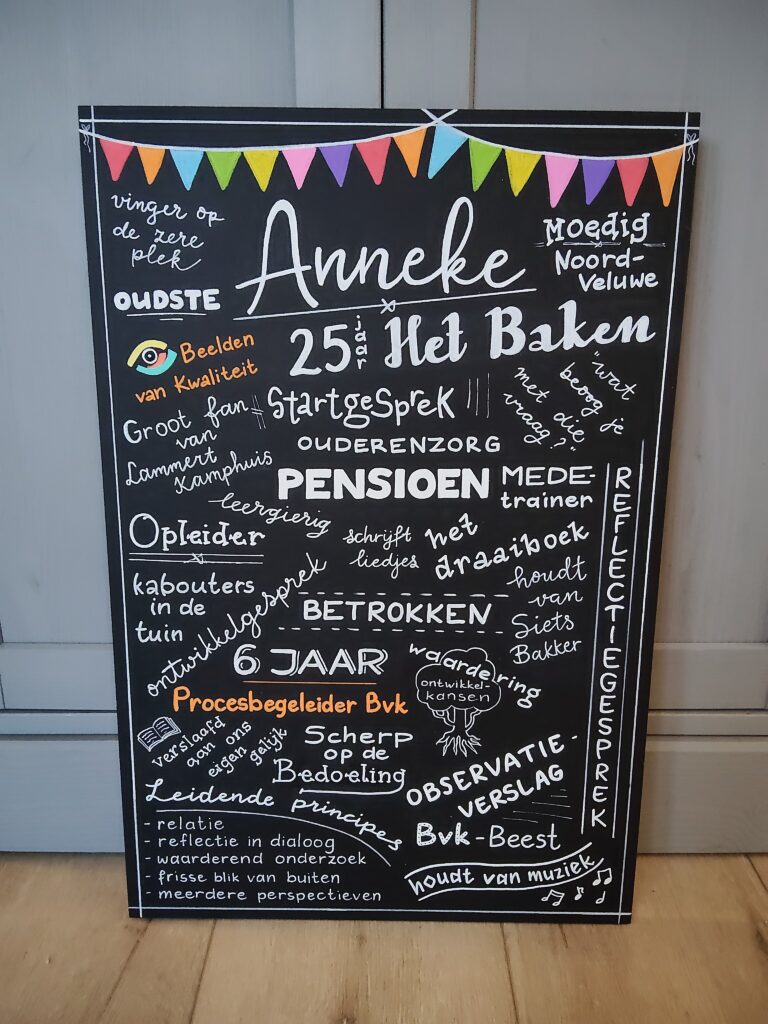 vinger op
de zere
plek
Anneke
Moedig
Noord-
Veluwe
OUDSTE
25 jaar Het Baken
Beelden
van Kwaliteit
Groot fan
van
Lammert
Kamphuis
StartgeSpreK
"wat
beoog je
met die
vraag?"
OUDERENZORG
PENSIOEN
MEDE-
trainer
REFLECTIEGESPREK
leergierig
Opleider
schrijft
liedjes
het
draaiboek
kabouters
in de
tuin
ontwikkelgesprek
BETROKKEN
houdt
van
Siets
Bakker
6 JAAR
Procesbegeleider Bvk
waardering
ontwikkel-
kansen
verslaafd
aan ons
eigen gelijk
Scherp
op de
Bedoeling
OBSERVATIE-
VERSLAG
Leidende principes
- relatie
- reflectie in dialoog
- waarderend onderzoek
- frisse blik van buiten
- meerdere perspectieven
Bvk-Beest
houdt van muziek